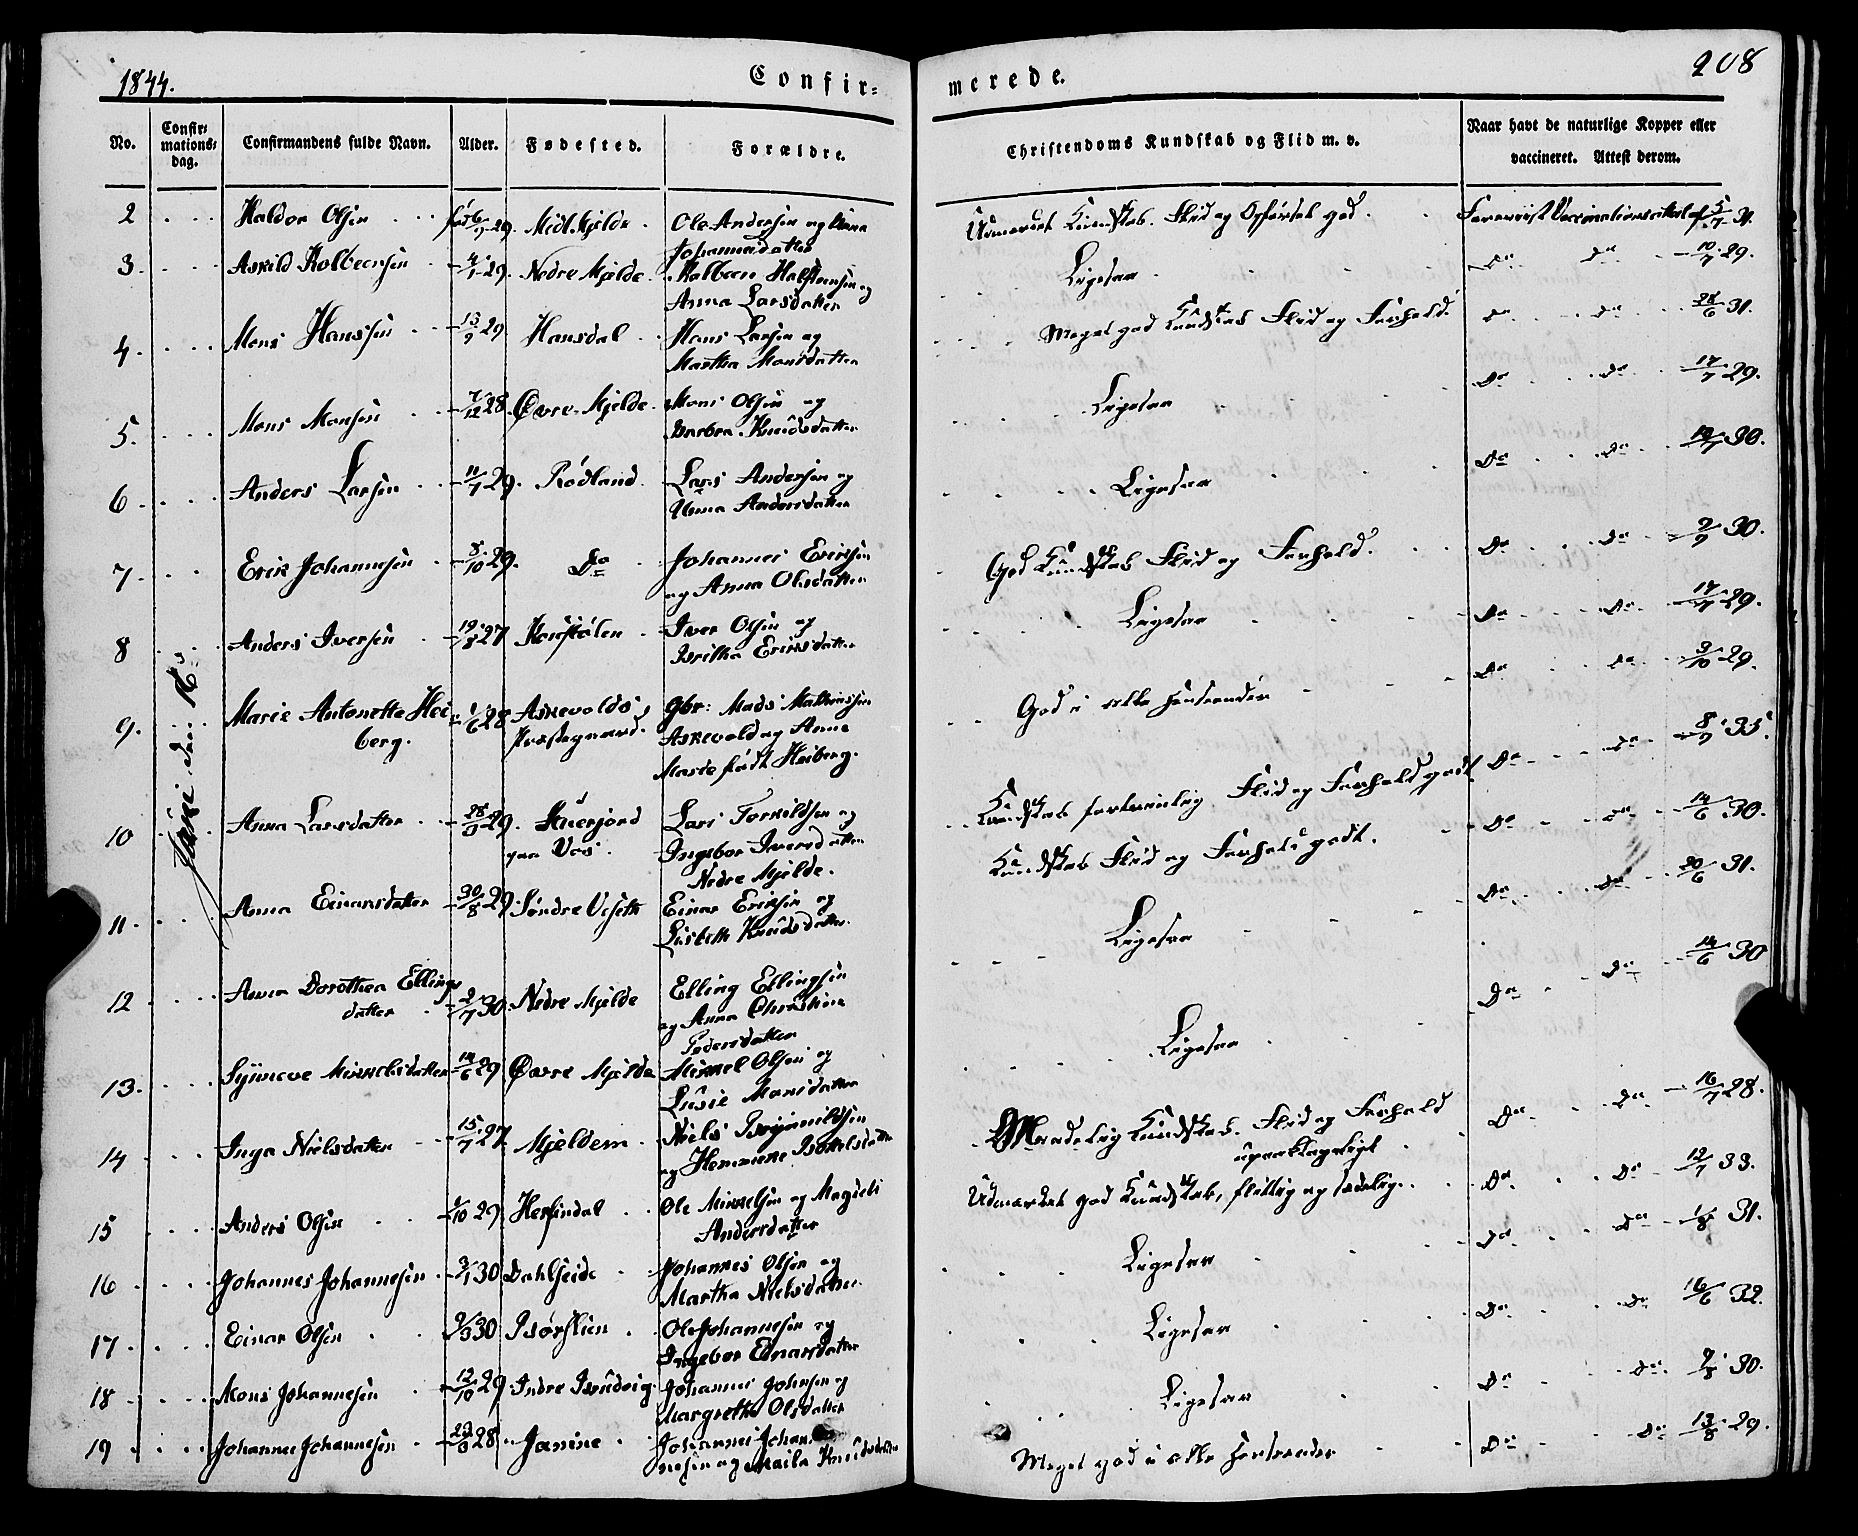 1844.
Confir=
merede.
208
No.
Confir=
mations=
dag.
Confirmandens fulde Navn.
Alder.
Fødested.
Forældre.
Christendoms Kundskab og Flid m. v.
Naar havt de naturlige Kopper eller
vaccineret. Attest derom.
2 Haldor Olsen Midt Mjelde Ole Andersen og Anna
Johannesdatter
Udmærket Kundskab. Flid og Opførsel god.
3. Askild Kolbeensen 4/1 29. Nedre Mjelde Kolbeen Halsteensen og
Anna Larsdatter
Ligesaa Do Do 10/7 29.
4. Mons Hanssen 13/9 29 Hansdal Hans Larsen og
Martha Monsdatter
Meget god Kundskab Flid og Forhold. Do Do 28/6 31.
5. Mons Monsen 7/12 28. Øvre Mjelde Mons Olsen og
Barbra Knudsdatter
Ligesaa Do Do 17/7 29.
6 Anders Larsen 11/7 29. Rødland Lars Andersen og
Anna Andersdatter
Ligesaa Do Do 30.
7 Erik Johannesen 8/10 29. Do Johannes Ericksen
og Anna Olsdatter
God Kundskab Flid og Forhold. Do Do 2/9 30.
8 Anders Iversen 19/8 27 Iver Olsen og
Britha Eriksdatter
Ligesaa Do Do 17/7 29.
9. Marie Antonette Hei=
berg. 1/6 28 Askevolds
Præstegaard. Gbr: Mads Mathiessen
Askevold og Anne
Marie født Heiberg.
God i alle Henseender Do Do 3/10 29.
10 Anna Larsdatter 28/9 29.
paa Vos. Lars Torkildsen og
Ingebor Iversdatter
Nedre Mjelde.
Kundskab fortrinlig Flid og Forhold godt Do Do 8/9 35.
11 Anna Einarsdatter 30/8 29. Søndre Veseth Einar Ericksen og
Lisbeth Knudsdatter
Kundskab Flid og Forhold godt. Do Do 14/6 30.
12 Anna Dorothea Ellings
datter 2/7 30. Nedre Mjelde Elling Ellingsen
og Anna Christina
Pedersdatter
Ligesaa Do Do 20/6 31.
13. Synneve Mikkelsdatter 14/6 29 Øvre Mjelde Mikkel Olsen og
Lusie Monsdatter
Ligesaa Do Do 14/6 30
14 Inga Nielsdatter 15/7 27 Mjeldem Niels Brynnildsen
og
Maadelig Kundskab. Flid og Forhold
upaaklageligt Do Do 16/7 28.
15 Anders Olsen 29 Herfindal Ole Mikkelsen og Magdeli
Andersdatter
Udmærket god Kundskab, flittig og sædelig. Do Do 12/7 33.
16 Johannes Johannesen 3/1 30 Dahlseide Johannes Olsen og
Martha Nielsdatter
Ligesaa Do Do 1/8 31.
17 Einar Olsen 9/3 30 Børslien Ole Johannesen og
Ingebor Einarsdatter
Ligesaa Do Do 16/6 32.
18 Mons Johannesen 12/10 29. Indre Bruvig Johannes Johnsen og
Margrethe Olsdatter
Ligesaa Do Do 9/8 30.
19 Johannes Johannesen 28. Johannes Johan
nesen og Knudsdatter
Meget god i alle Henseender Do Do 13/8 29.